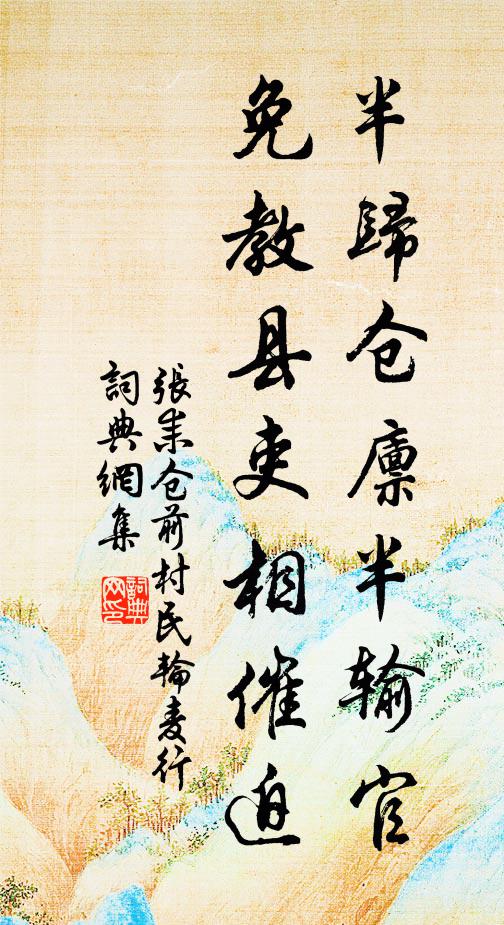 半歸仓廩半輸官
免教县吏相催迫
張耒仓前村民輸麦行
詞典網集
詞典网印